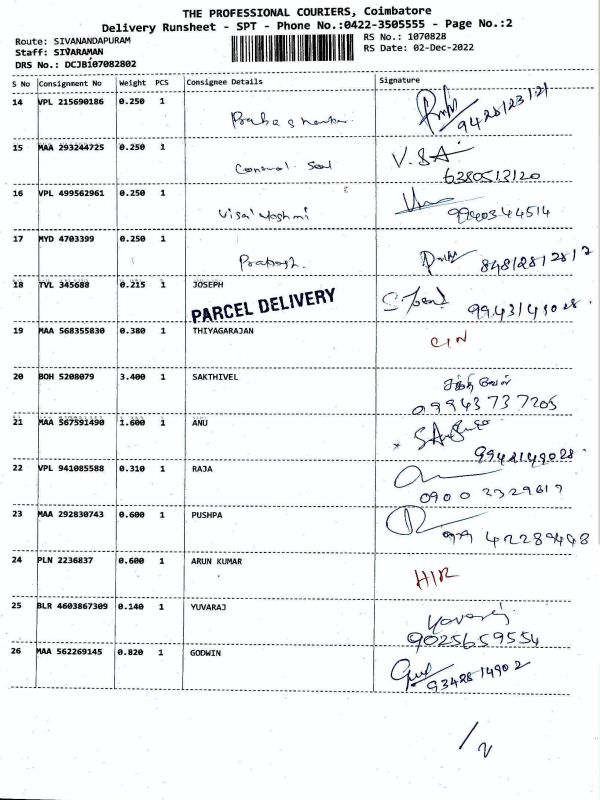 THE PROFESSIONAL COURIERS, Coimbatore
Delivery Runsheet - SPT - Phone No.:0422-3505555 - Page No.:2
Route: SIVANANDAPURAM
RS No.: 1070828
Staff: SIVARAMAN
RS Date: 02-Dec-2022
DRS No.: DCJB107082802
S No Consignment No Weight PCS Consignee Details Signature
14 VPL 215690186 0.250 1
15 MAA 293244725 0.250 1 V.SA
6380513120
16 VPL 499562961 0.250 1
9940344514
17 MYD 4703399 0.250 1 Prakash
18 TVL 345688 0.215 1 JOSEPH
PARCEL DELIVERY
19 MAA 568355830 0.380 1 THIYAGARAJAN
20 BOH 5208079 3.400 1 SAKTHIVEL சக்திவேல்
099437 37205
21 MAA 567591490 1.600 1 ANU
22 VPL 941085588 0.310 1 RAJA
23 MAA 292830743 0.600 1 PUSHPA
24 PLN 2236837 0.600 1 ARUN KUMAR
25 BLR 4603867309 0.140 1 YUVARAJ
9025659554
26 MAA 562269145 0.820 1 GODWIN
9342814902
1/2